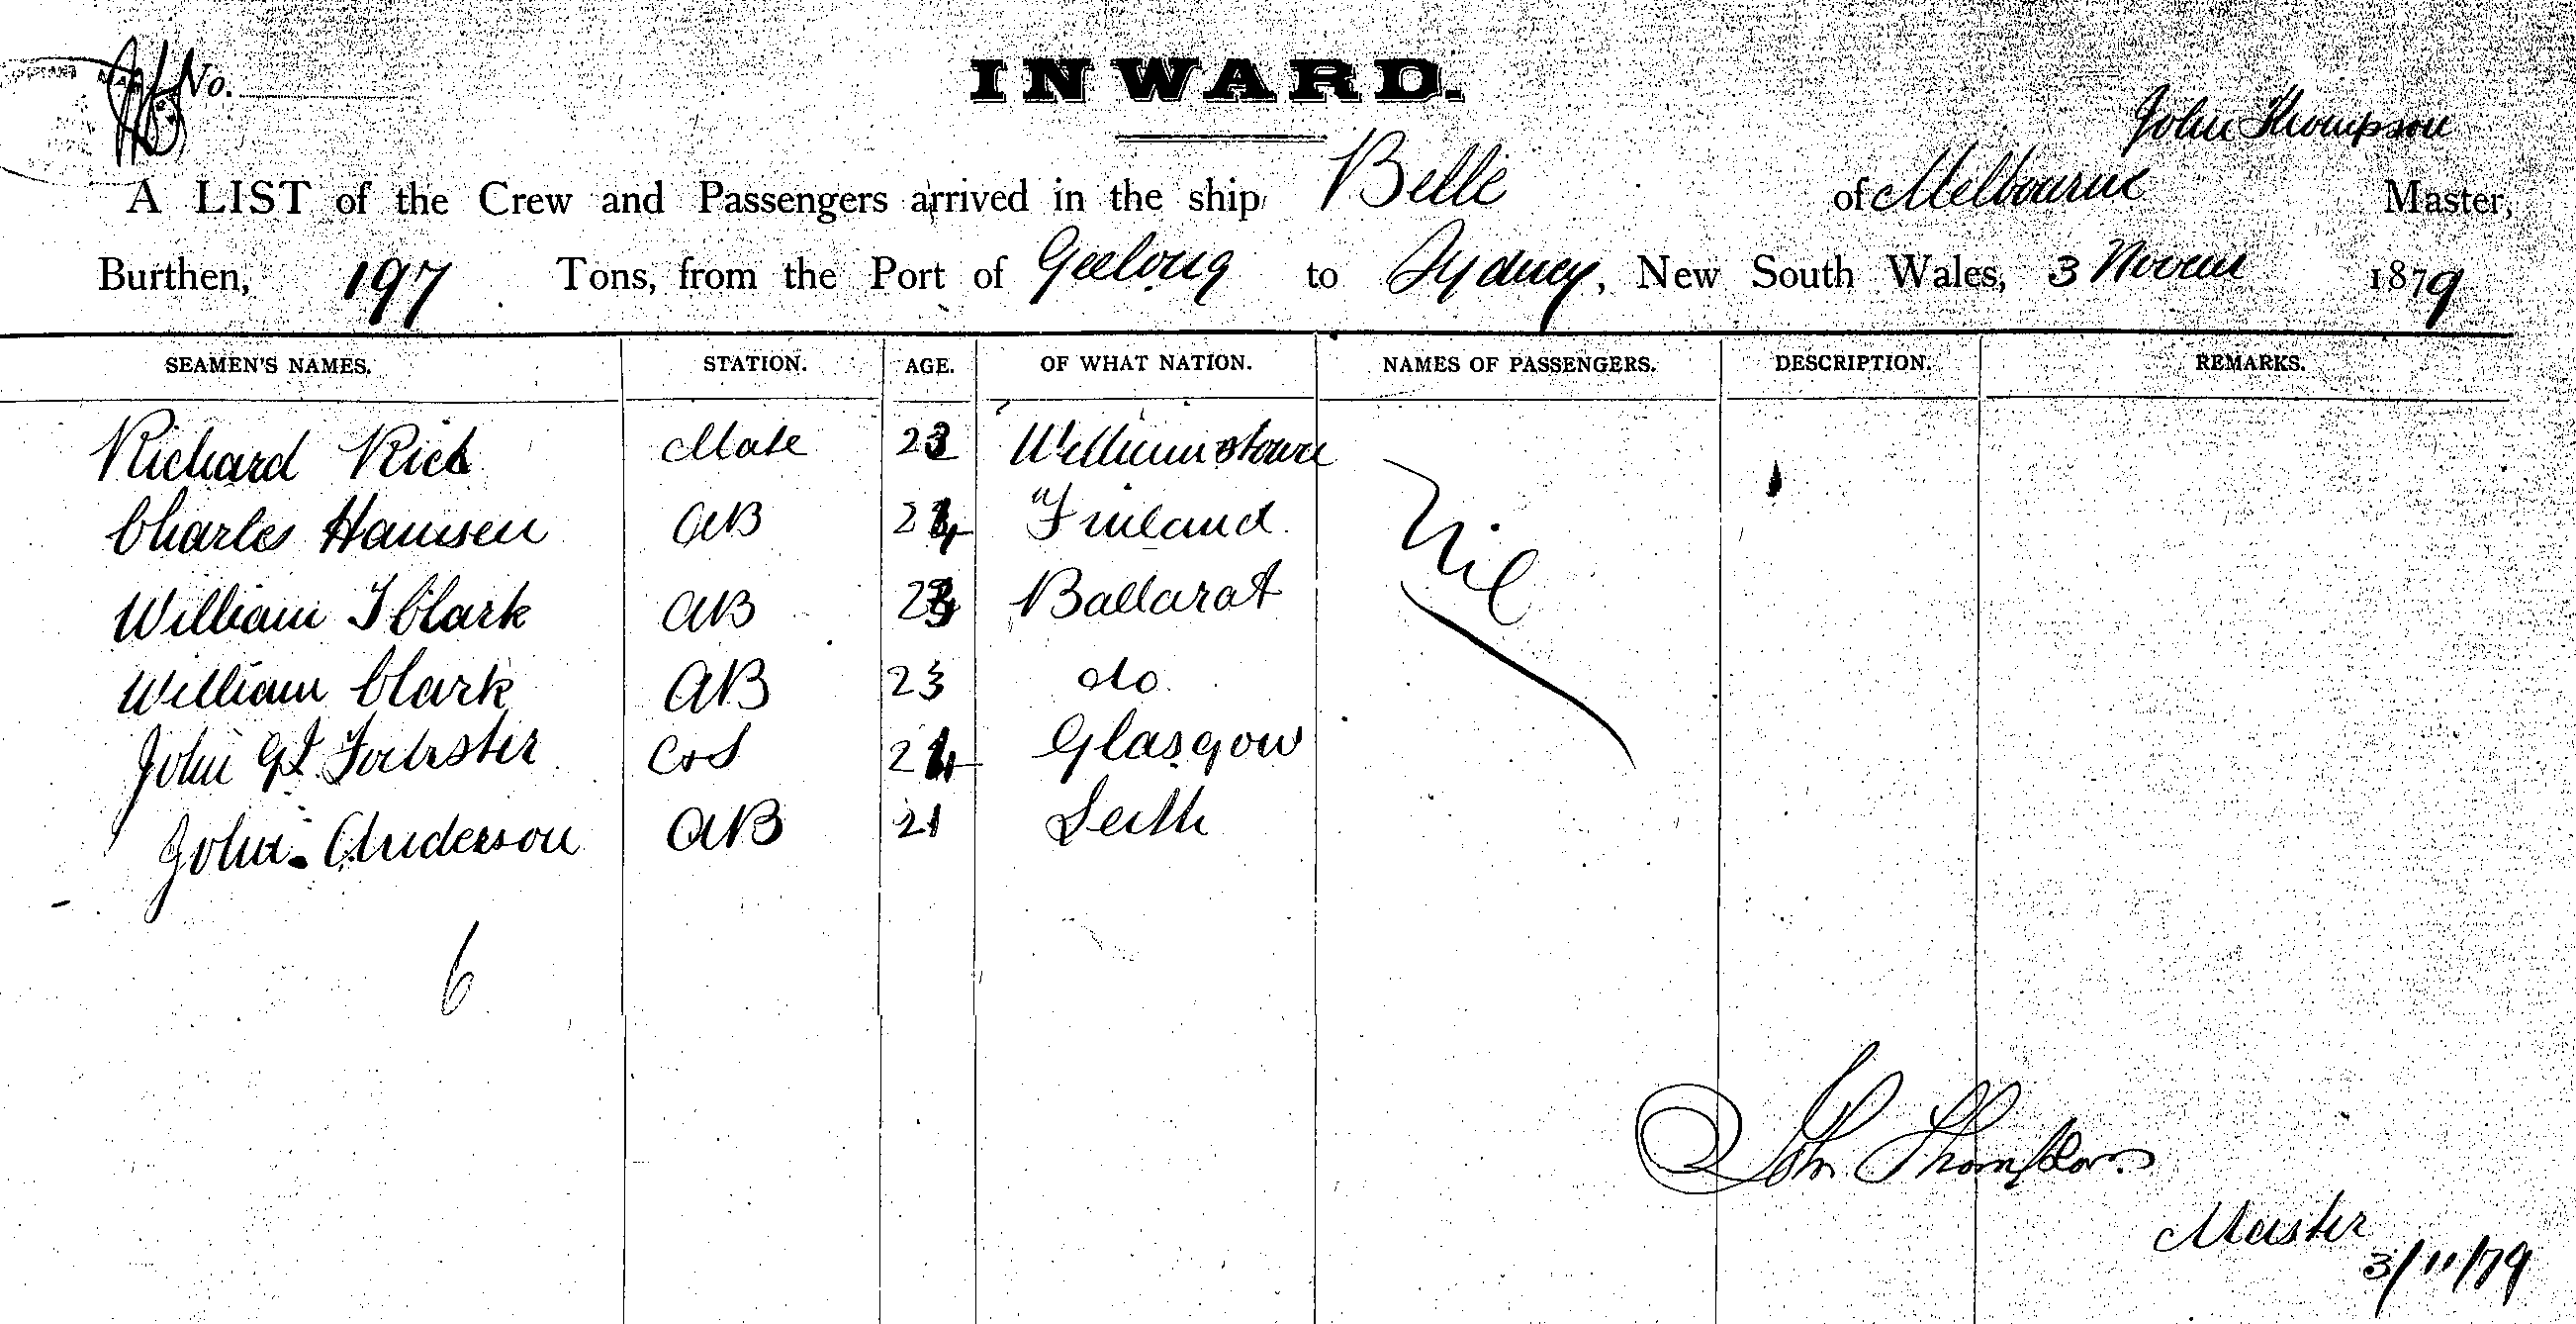 No.
INWARD.
John Thompson
A LIST of the Crew and Passengers arrived in the ship Belle of Melbourne Master,
Burthen, 197 Tons, from the Port of Geelong to Sydney, New South Wales, 3 Novem 1879
SEAMEN'S NAMES. STATION. AGE. OF WHAT NATION. NAMES OF PASSENGERS. DESCRIPTION. REMARKS.
Richard Rick Mate Williamstown Nil
Charles Hansen AB 24 Finland
William J Clark AB Ballarat
William Clark AB 23 do
John Forster 24 Glasgow
John Anderson AB 21 Leith
6
John Thompson
Master
3/11/79